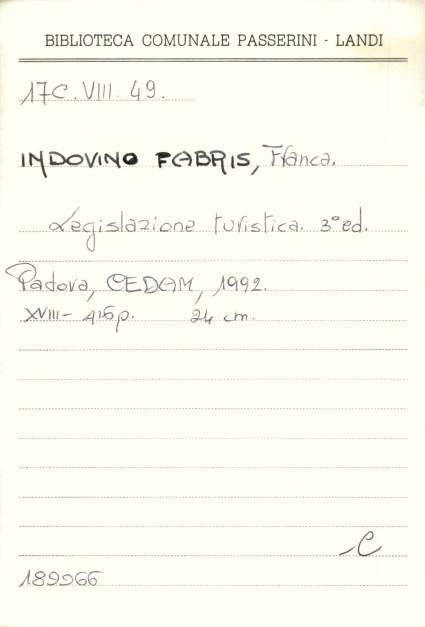 BIBLIOTECA COMUNALE PASSERINI - LANDI
17C.VIII.49.
INDOVINO FABRIS, Franca.
Legislazione turistica. 3° ed.
Padova, CEDAM, 1992.
XVIII- 416p. 24 cm.
C
189966